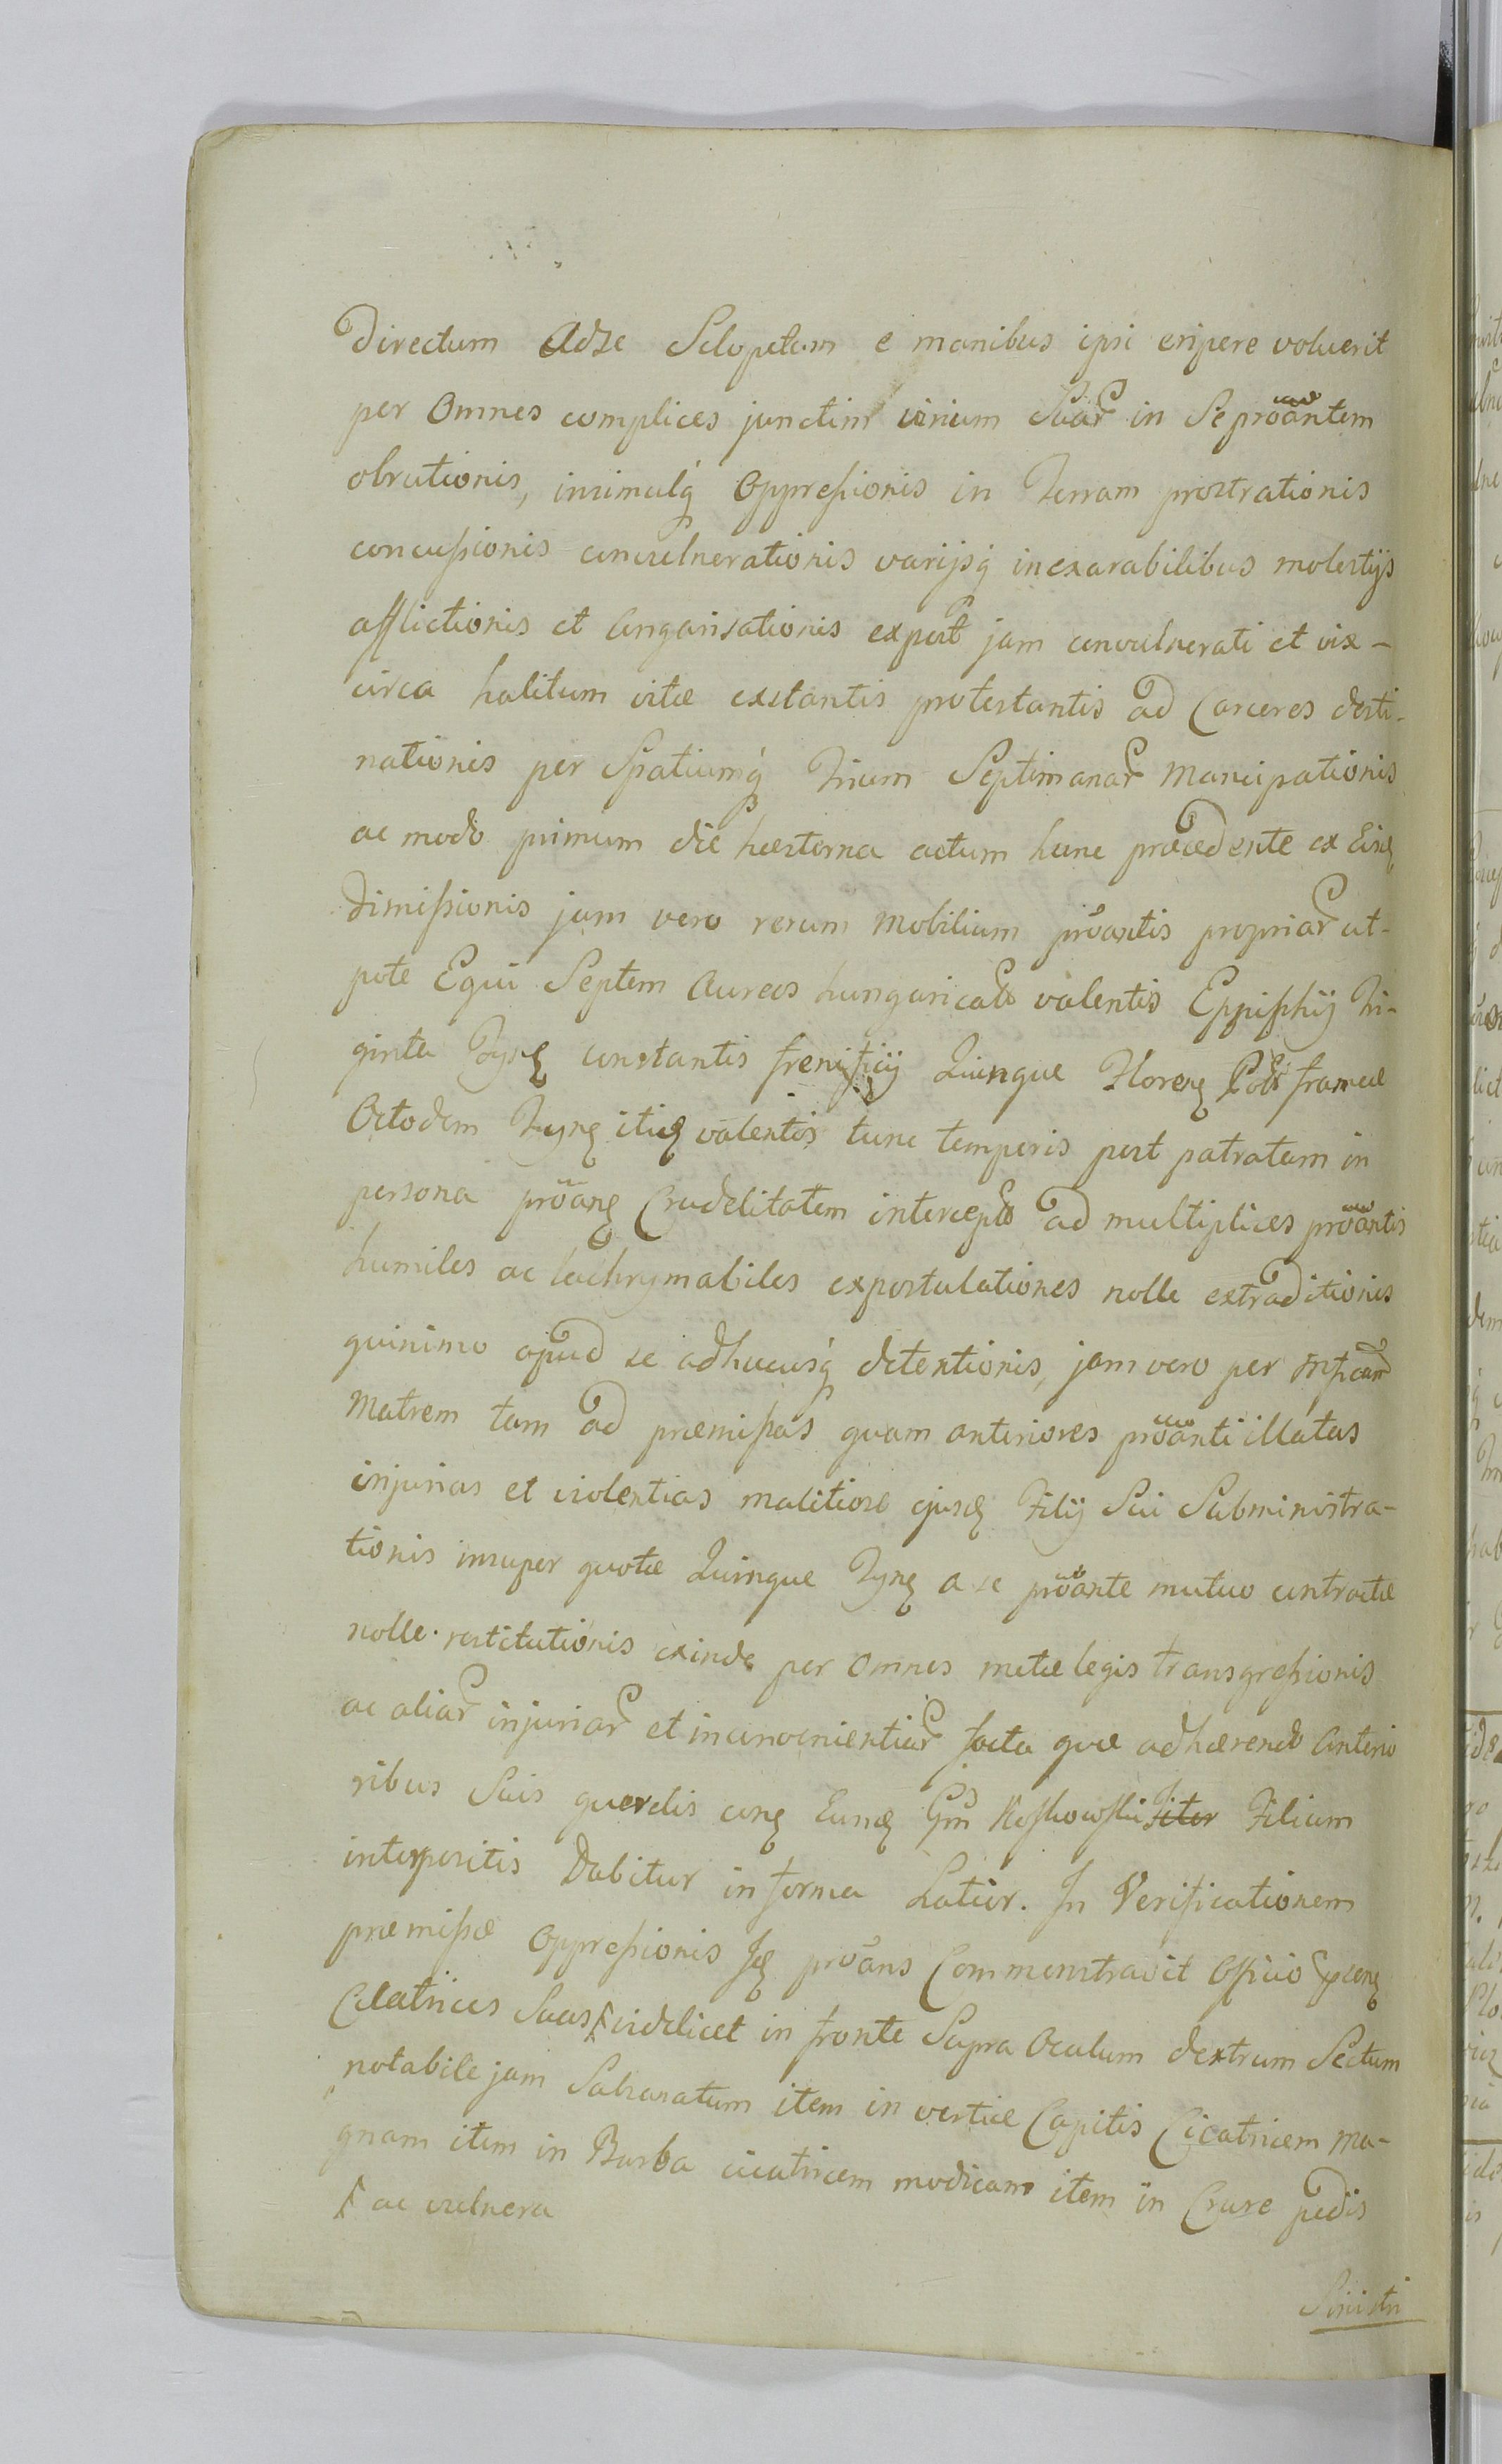 Directum adse Sclopetum e manibus ipsi eripere voluerit
per Omnes complices junctim virium Suar in Se proantem
obrutionis, insimulq Oppressionis in Terram prostrationis
concussionis convulnerationis varijsq inexarabilibus molestijs
afflictionis et angarisationis expost jam convulnerati et vix-
circa halitum vitæ exstantis protestantis ad Carceres desti-
nationis per Spatiumq Trium Septimanar Mancipationis
ac modo primum die hesterna actum hunc præcedente ex Eisq
Dimissionis jam vero rerum Mobilium proantis propriar ut-
pote Equi Septem Aureos hungarical valentis Ephippij Tri-
ginta Tynf constantis frenificij Quinque Floren Pol frameæ
Octodem Tynf itid valentis tunc temporis post patratam in
persona proan Crudelitatem intercept ad multiplices proantis
humiles ac lachrymabiles expostulationes nolle extraditionis
quinimo apud se adhucusq detentionis, jam vero per
Matrem tam ad præmissas quam anteriores proanti illatas
injurias et violentias malitiose ejusd Filij Sui Subministra-
tionis insuper quotæ Quinque Tynf a se proante mutuo contractæ
nolle restitutionis exinde per Omnes metæ legis transgressionis
ac aliar injuriar et inconvenientiar facta quæ adhærendo Anterio
ribus Suis querelis con Eund Gm Koszkowski Filium
interpositis Dabitur in forma Latior. In Verificationem
præmissæ Oppressionis Id proans Commonstravit Officio
Cicatrices Suas videlicet in fronte Supra Oculum dextrum Sectum
notabile jam Subsanatum item in vertice Capitis Cicatricem Ma-
gnam item in Barba cicatricem modicam item in Crure pedis
ac vulnera
Sinistri